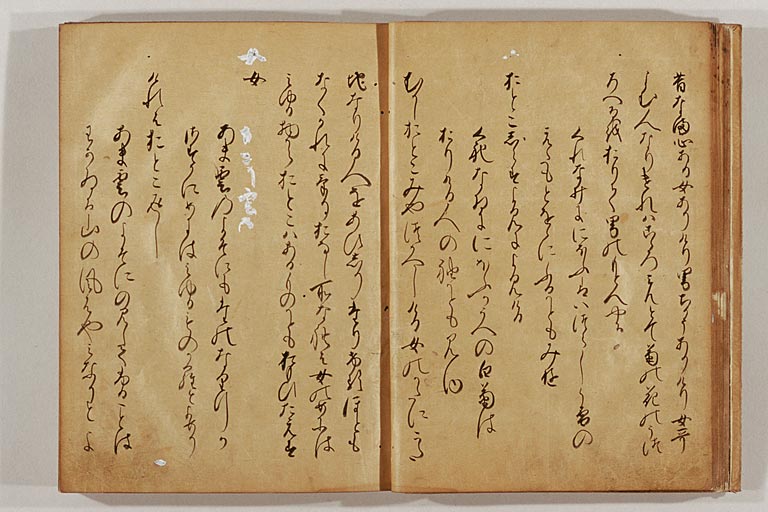 昔なま心ある女ありけり男ちかうありけり女哥
よむ人なりけれは心みんとて菊の花のうつ
ろへるをおりて男のもとへやる
くれなゐににほふはいつらしら雪の
えたもとをゝにふるかともみゆ
おとこしらすよみによみける
くれなゐににほふかうへの白菊は
おりける人の袖かともみゆ
むかしおとこみやつかへしける女のかたにこた
ちなりける人をあひしりたりけるほとも
なくかれにけりおなし所なれは女のめには
みゆる物からおとこはあるものかともおもひたらす
女
あま雲のよそにも人のなりゆくか
さすかにめにはみゆるものからとよめり
けれはおとこ返し
あま雲のよそにのみしてふることは
わかゐる山の風はやみなりとよ